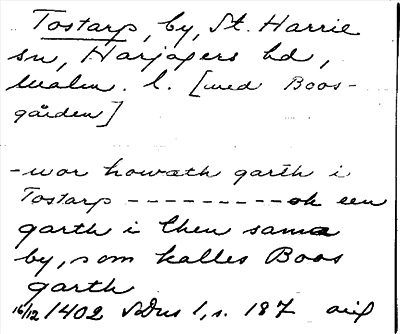 Tostarp, by, St. Harrie
sn, Harjagers hd,
Malm. l. [med Boos-
gården]
-wor howæth garth i
Tostarp --------- ok een
garth i then sama
by, som kalles Boos
garth
16/12 1402 SDns 1, s. 187 orig